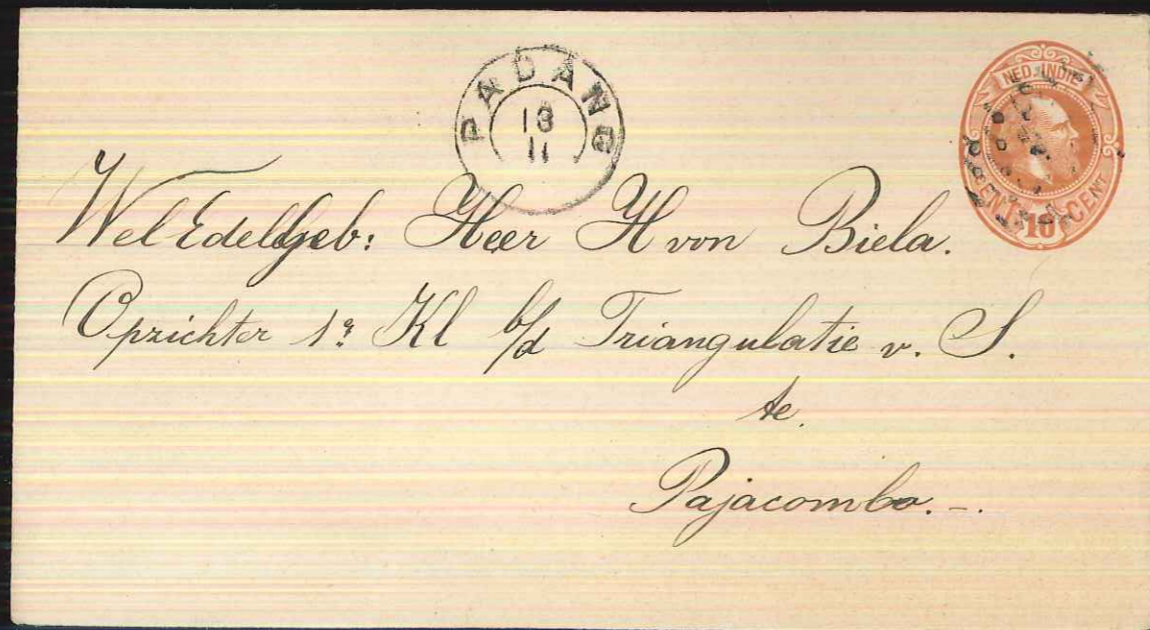 PADANG
13
11
NED. INDIE
10 CENT
WelEdelGeb: Heer H von Biela.
Opzichter 1e Kl b/d Triangulatie v. S.
te.
Pajacombo. -.